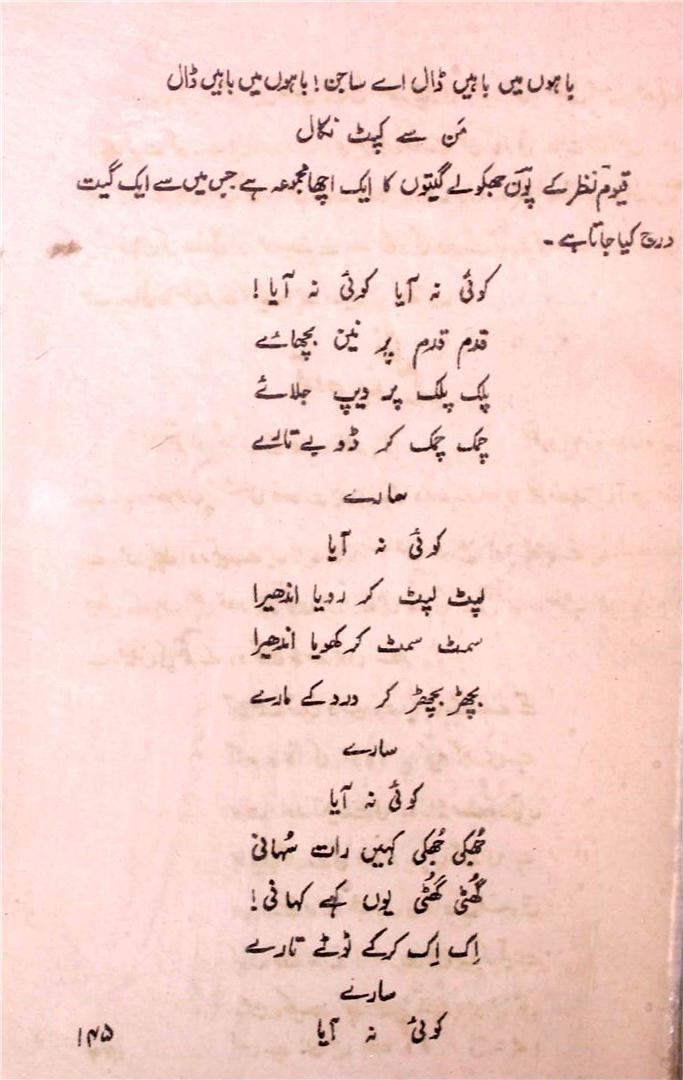 باہوں میں باہیں ڈال اے ساجن! باہوں میں باہیں ڈال
مَن سے کپٹ نکال
قیوم نظر کے پَوَن جھکولے گیتوں کا ایک اچھا مجموعہ ہے جس میں سے ایک گیت
درج کیا جاتا ہے۔
کوئی نہ آیا کوئی نہ آیا!
قدم قدم پر نین بچھائے
پلک پلک پر دیپ جلائے
چمک چمک کر ڈوبے تارے
سارے
کوئی نہ آیا
لپٹ لپٹ کر رویا اندھیرا
سمٹ سمٹ کر کھویا اندھیرا
بچھڑ بچھڑ کر درد کے مارے
سارے
کوئی نہ آیا
جُھکی جُھکی کہیں رات سُہانی
گُھٹی گُھٹی یوں کہے کہانی!
اِک اِک کرکے ٹوٹے تارے
سارے
کوئی نہ آیا
۱۴۵